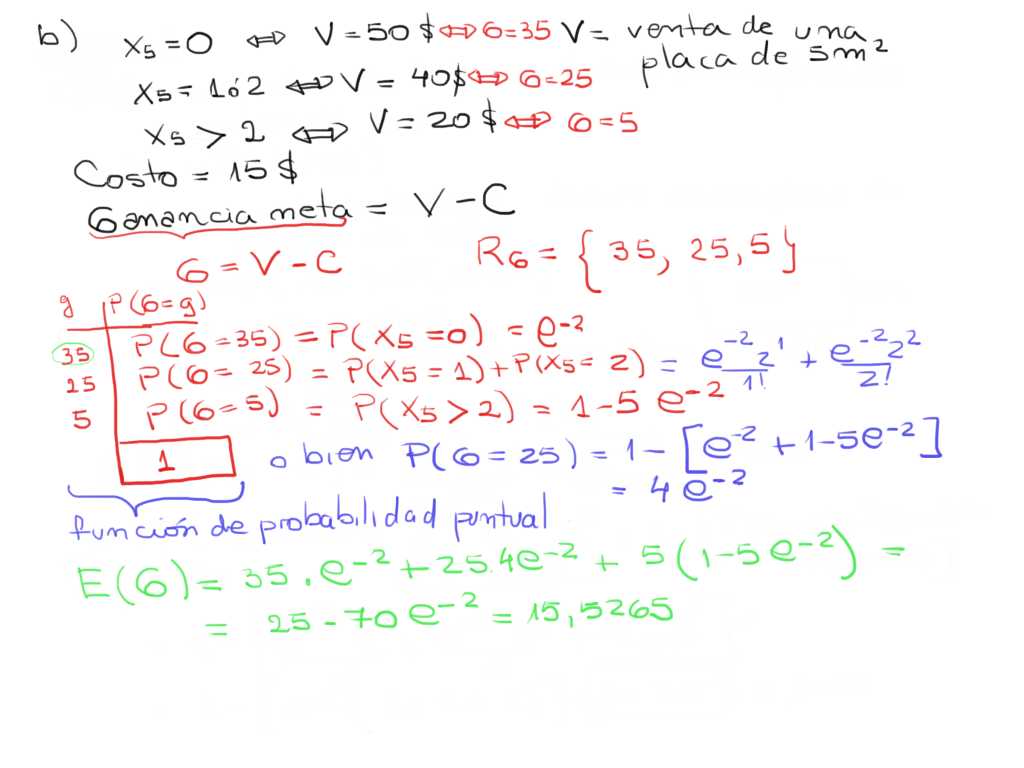 b) X5=0 ⇔ V=50 $ ⇔ G=35 V= venta de una
placa de 5m²
X5= 1ó2 ⇔ V = 40$ ⇔ G=25
X5 > 2 ⇔ V=20 $ ⇔ G=5
Costo = 15 $
Ganancia meta = V-C
G = V-C RG = { 35, 25, 5 }
g P(G=g)
35 P(G=35) = P(X5=0) = e^-2
25 P(G= 25) = P(X5=1)+P(X5= 2) = e^-2 2^1 / 1! + e^-2 2^2 / 2!
5 P(G=5) = P(X5>2) = 1-5 e^-2
1 o bien P(G=25) = 1- [e^-2 + 1-5e^-2]
= 4 e^-2
función de probabilidad puntual
E(G) = 35.e^-2 + 25.4e^-2 + 5(1-5e^-2) =
= 25-70e^-2 = 15,5265